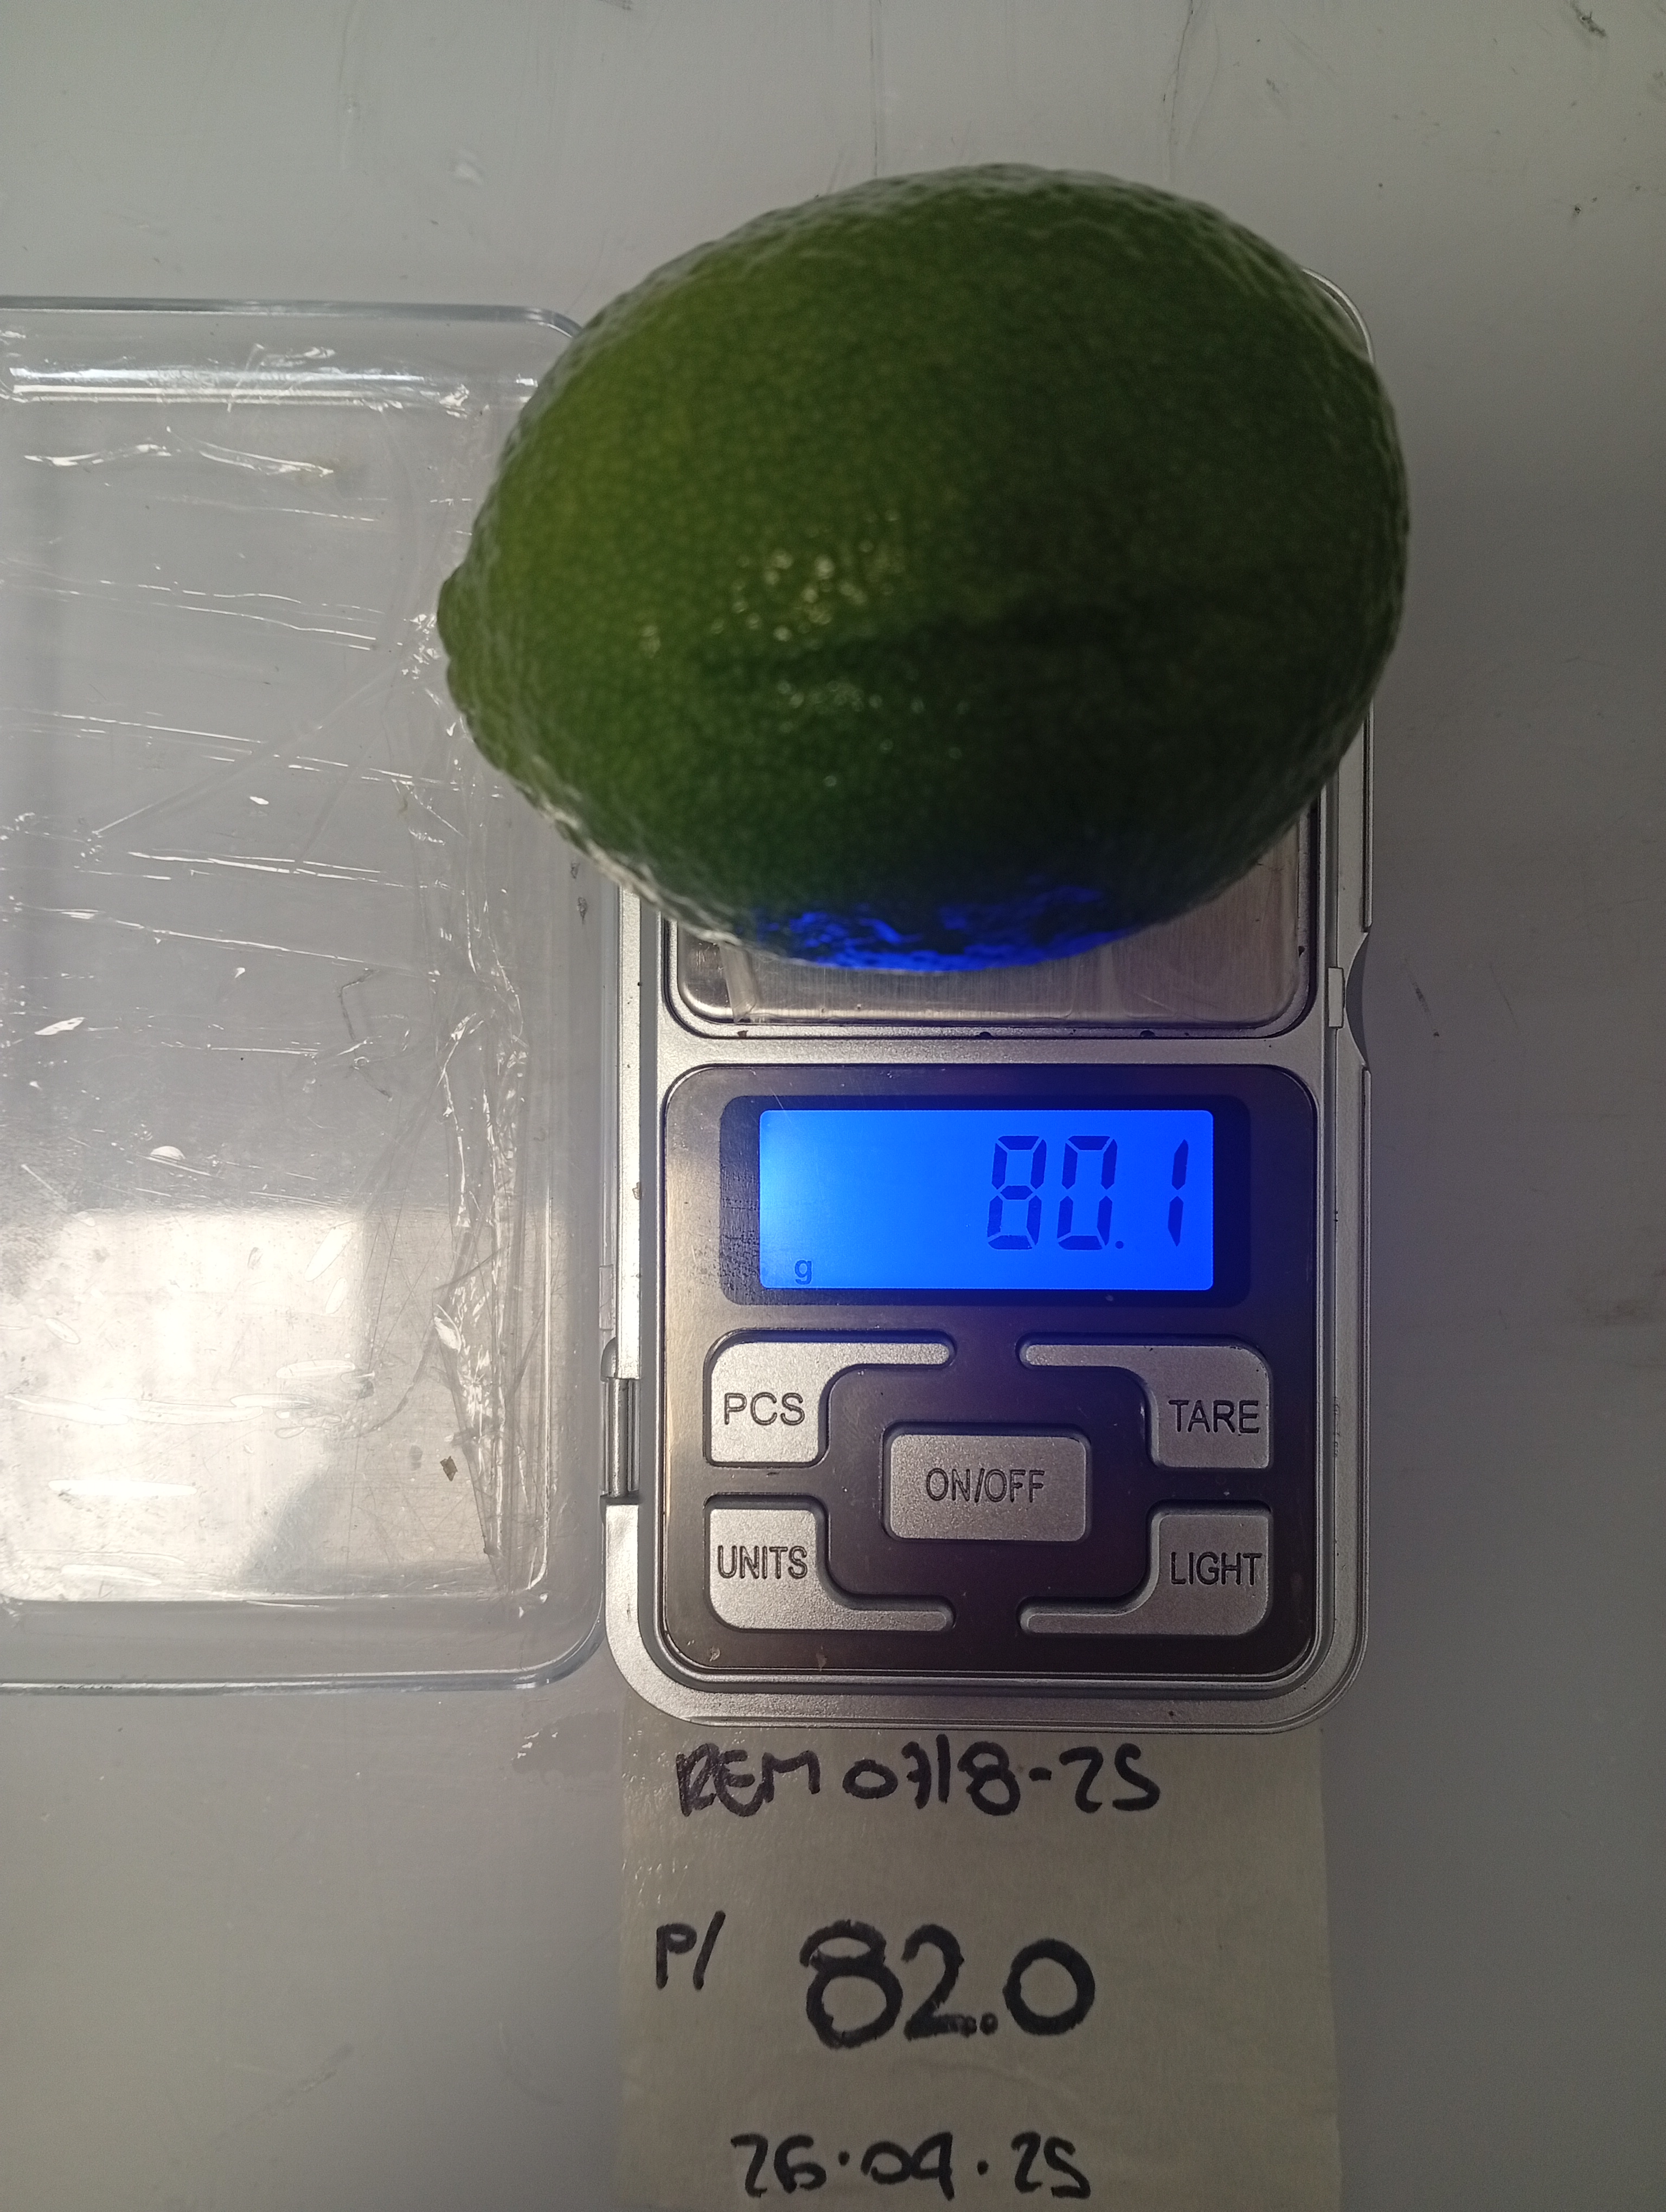 80.1
g
PCS
TARE
ON/OFF
UNITS
LIGHT
REM 0718-25
P/ 82.0
26.04.25